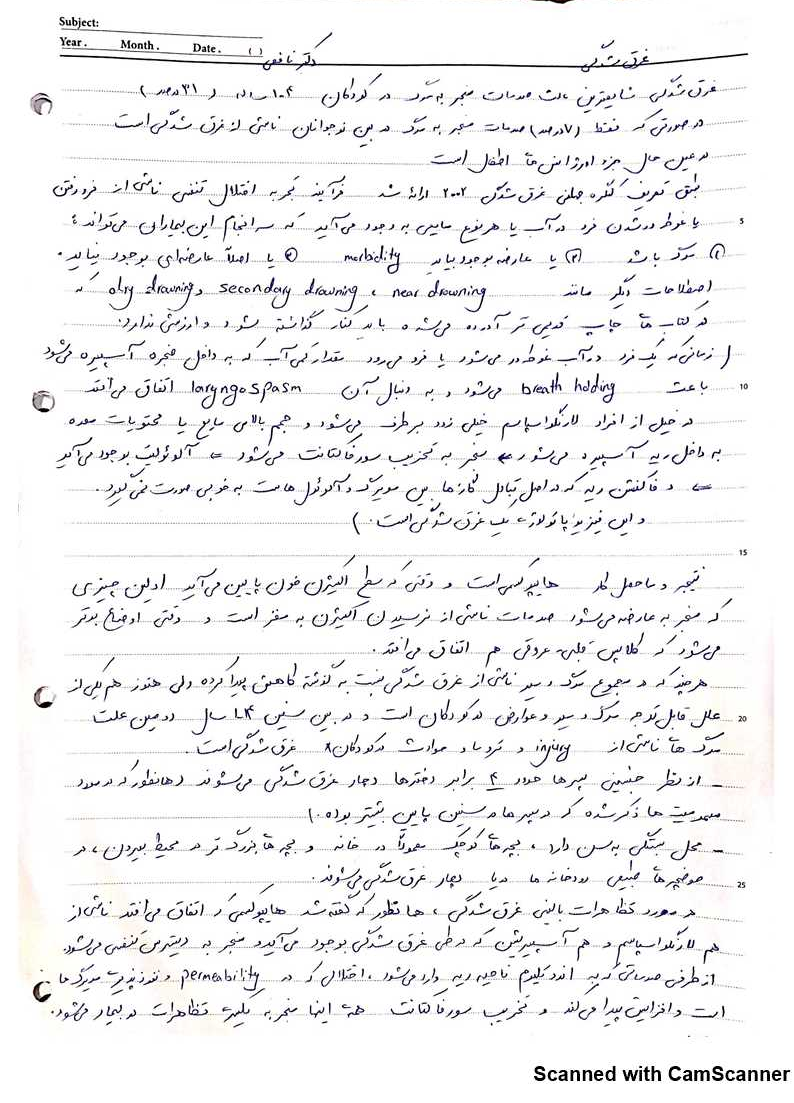 Subject:
Year. Month. Date. ( )
غرق شدگی دکتر نافعی
غرق شدگی شایعترین علت صدمات منجر به مرگ در کودکان ۴-۱ ساله (۳۱ درصد)
در صورتی که فقط (۷درصد) صدمات منجر به مرگ در بین نوجوانان ناشی از غرق شدگی است
در عین حال جزو اورژانس های اطفال است
طبق تعریف کنگره جهانی غرق شدگی ۲۰۰۲ ارائه شد فرآیند تجربه اختلال تنفسی ناشی از فرورفتن
یا غوطه ور شدن فرد در آب یا هر نوع مایعی به وجود می آید که سرانجام این بیماران می تواند:
① مرگ باشد ② یا عارضه بوجود بیاید morbidity ③ یا اصلاً عارضه ای بوجود نیاید.
اصطلاحات دیگر مانند near drowning ، secondary drawning و dry drawning که
در کتاب های چاپ قدیمی تر آورده می شده باید کنار گذاشته شود و ارزشی ندارد.
( زمانی که یک فرد در آب غوطه ور می شود یا فرو می رود مقدار کمی آب که به داخل حنجره آسپیره می شود
باعث breath holding می شود و به دنبال آن laryngospasm اتفاق می افتد
در خیلی از افراد لارنگواسپاسم خیلی زود برطرف می شود و حجم بالای مایع یا محتویات معده
به داخل ریه آسپیره می شود ← منجر به تخریب سورفاکتانت می شود ← آلوئولیت بوجود می آید
← و فانکشن ریه که در اصل تبادل گازها بین مویرگ و آلوئول هاست به خوبی صورت نمی گیرد.
و این فیزیوپاتولوژی یک غرق شدگی است. )
نتیجه و ماحصل کار هایپوکسی است و وقتی که سطح اکسیژن خون پایین می آید اولین چیزی
که منجر به عارضه می شود صدمات ناشی از نرسیدن اکسیژن به مغز است و وقتی اوضاع بدتر
می شود که کلاپس قلبی-عروقی هم اتفاق می افتد.
هرچند که در مجموع مرگ و میر ناشی از غرق شدگی نسبت به گذشته کاهش پیدا کرده ولی هنوز هم یکی از
علل قابل توجه مرگ و میر و عوارض در کودکان است و در بین سنین ۴-۱ سال دومین علت
مرگ های ناشی از injury و تروما و حوادث در کودکان، غرق شدگی است.
- از نظر جنسیتی پسرها حدود ۴ برابر دخترها دچار غرق شدگی می شوند (همانطور که در مورد
مسمومیت ها ذکر شده که در پسرها در سنین پایین بیشتر بوده.)
- محل بستگی به سن دارد ، بچه های کوچک معمولاً در خانه و بچه های بزرگ تر در محیط بیرون، در
حوضچه های طبیعی رودخانه ها دریا دچار غرق شدگی می شوند.
در مورد تظاهرات بالینی غرق شدگی ، همانطور که گفته شد هایپوکسی که اتفاق می افتد ناشی از
هم لارنگواسپاسم و هم آسپیریشن که در طی غرق شدگی بوجود می آید و منجر به دیسترس تنفسی می شود.
از طرفی صدماتی که به اندوتلیوم ناحیه ریه وارد می شود ، اختلالی که در permeability و نفوذپذیری مویرگ ها
است و افزایش پیدا می کند و تخریب سورفاکتانت همه اینها منجر به یکسری تظاهرات در بیمار می شود.
5
10
15
20
25
Scanned with CamScanner